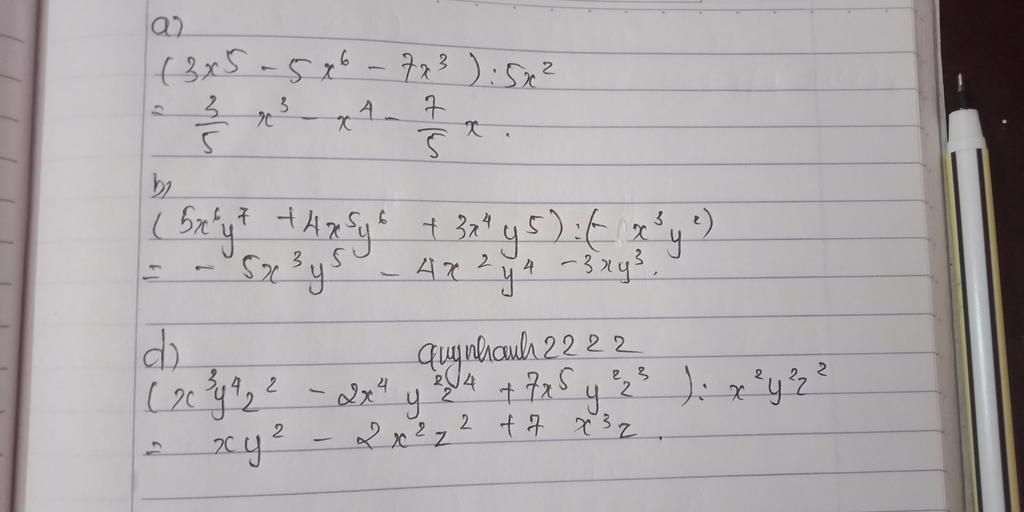 a)
(3x⁵ - 5x⁶ - 7x³) : 5x²
= 3/5 x³ - x⁴ - 7/5 x.
b)
(5x⁶y⁷ + 4x⁵y⁶ + 3x⁴y⁵) : (- x³y²)
= - 5x³y⁵ - 4x²y⁴ - 3xy³.
d) quynhanh2222
(x³y⁴z² - 2x⁴y²z⁴ + 7x⁵y²z³) : x²y²z²
= xy² - 2x²z² + 7 x³z.